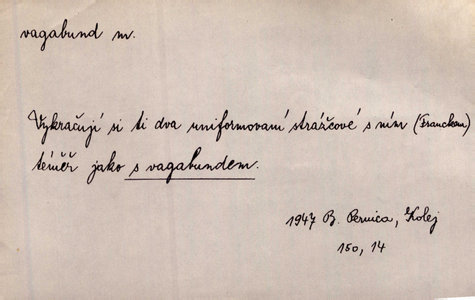 vagabund m.
Vykračují si ti dva uniformovaní strážcové s ním (Franckem)
téměř jako s vagabundem.
1947 B. Pernica, Kolej
150, 14